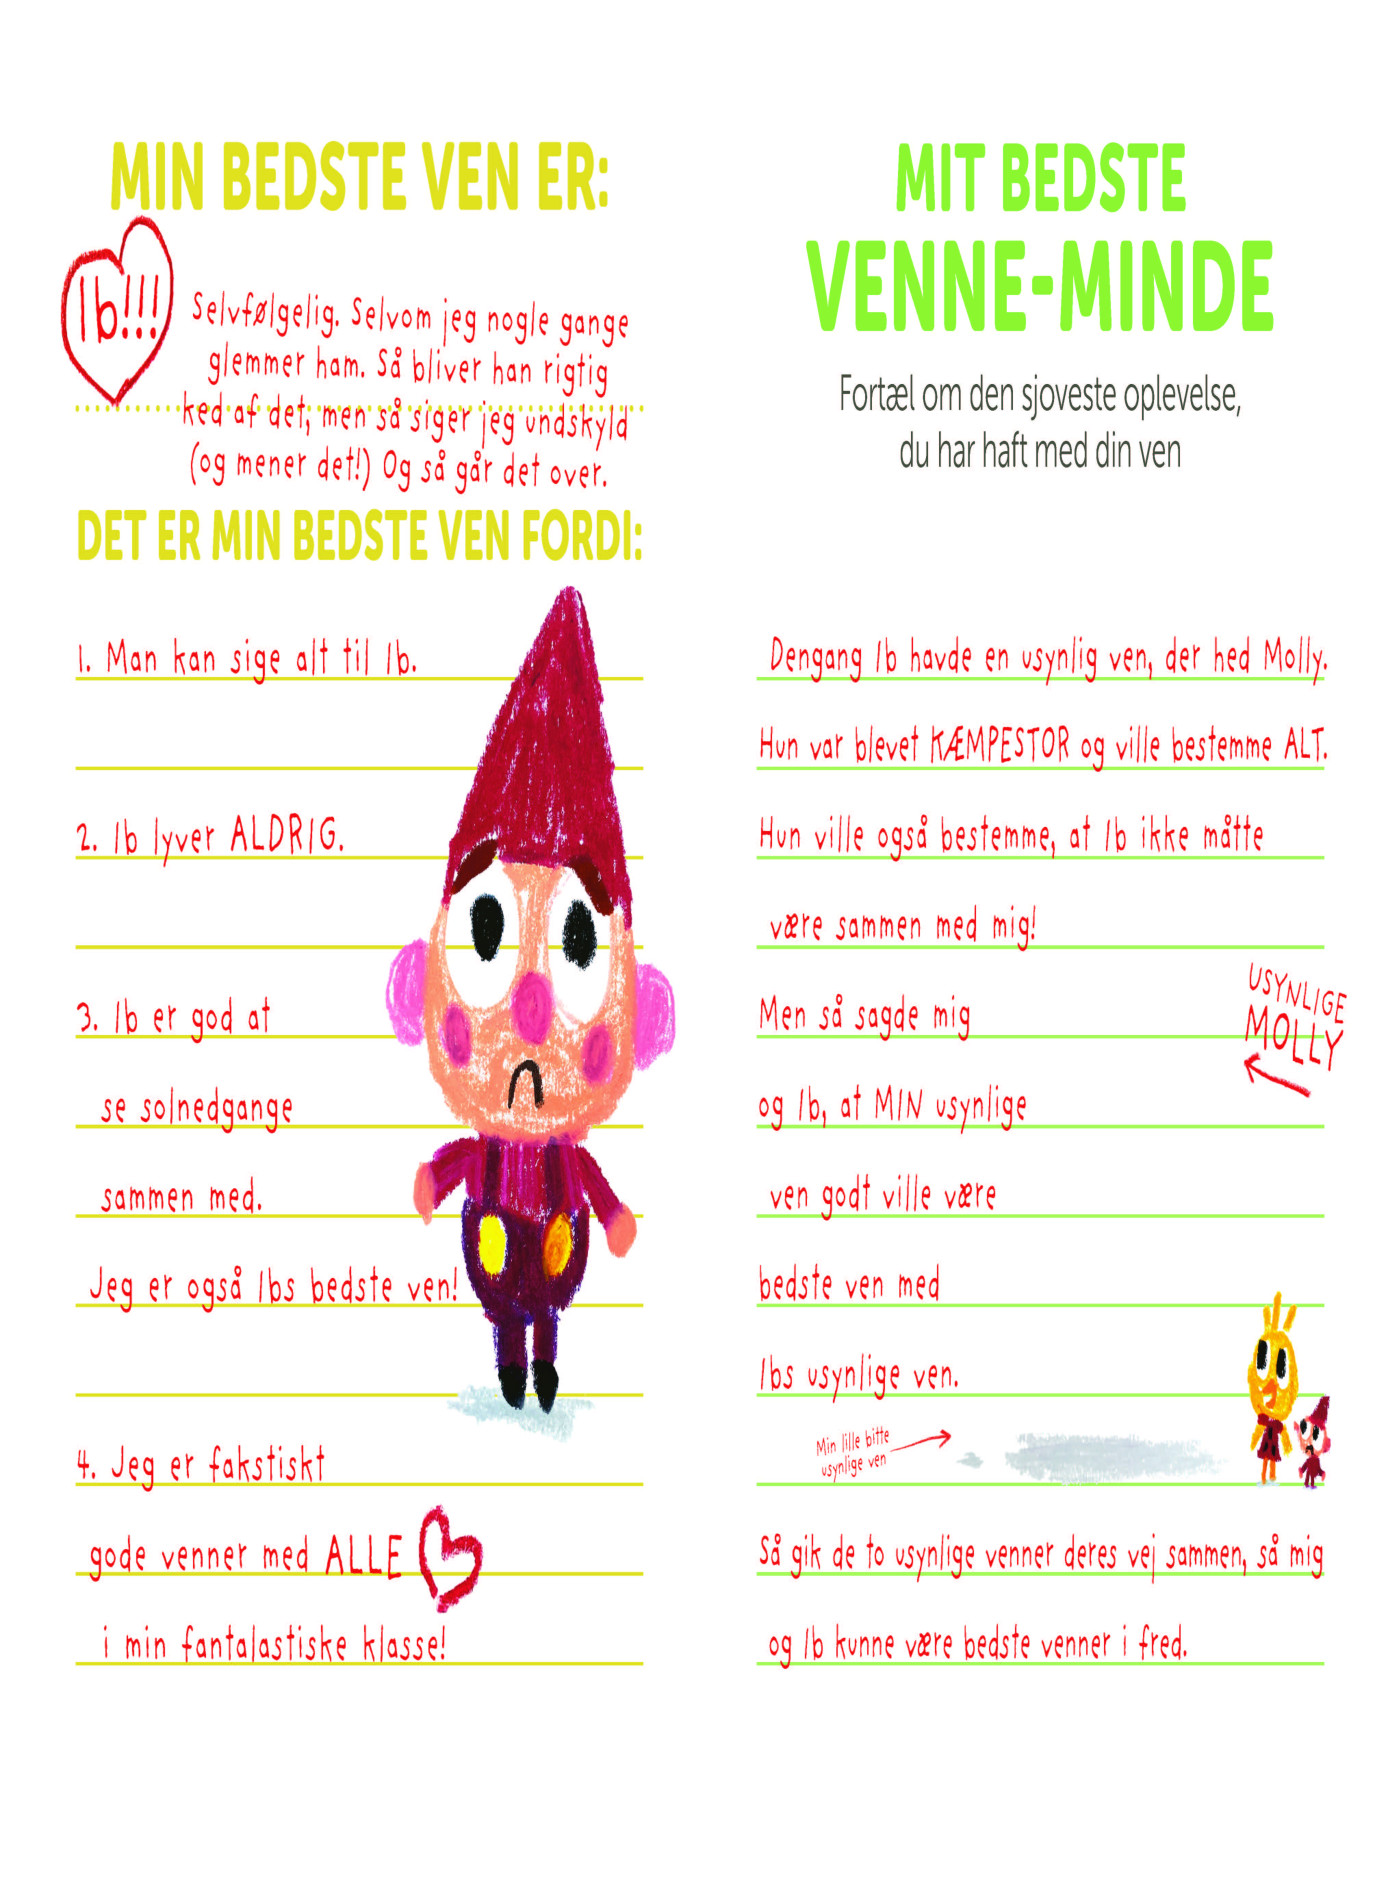 MIN BEDSTE VEN ER:
Ib!!!
Selvfølgelig. Selvom jeg nogle gange
glemmer ham. Så bliver han rigtig
ked af det, men så siger jeg undskyld
(og mener det!) Og så går det over.
DET ER MIN BEDSTE VEN FORDI:
1. Man kan sige alt til Ib.
2. Ib lyver ALDRIG.
3. Ib er god at
se solnedgange
sammen med.
Jeg er også Ibs bedste ven!
4. Jeg er fakstiskt
gode venner med ALLE
i min fantalastiske klasse!
MIT BEDSTE
VENNE-MINDE
Fortæl om den sjoveste oplevelse,
du har haft med din ven
Dengang Ib havde en usynlig ven, der hed Molly.
Hun var blevet KÆMPESTOR og ville bestemme ALT.
Hun ville også bestemme, at Ib ikke måtte
være sammen med mig!
Men så sagde mig
og Ib, at MIN usynlige
ven godt ville være
bedste ven med
Ibs usynlige ven.
USYNLIGE
MOLLY
Min lille bitte
usynlige ven
Så gik de to usynlige venner deres vej sammen, så mig
og Ib kunne være bedste venner i fred.